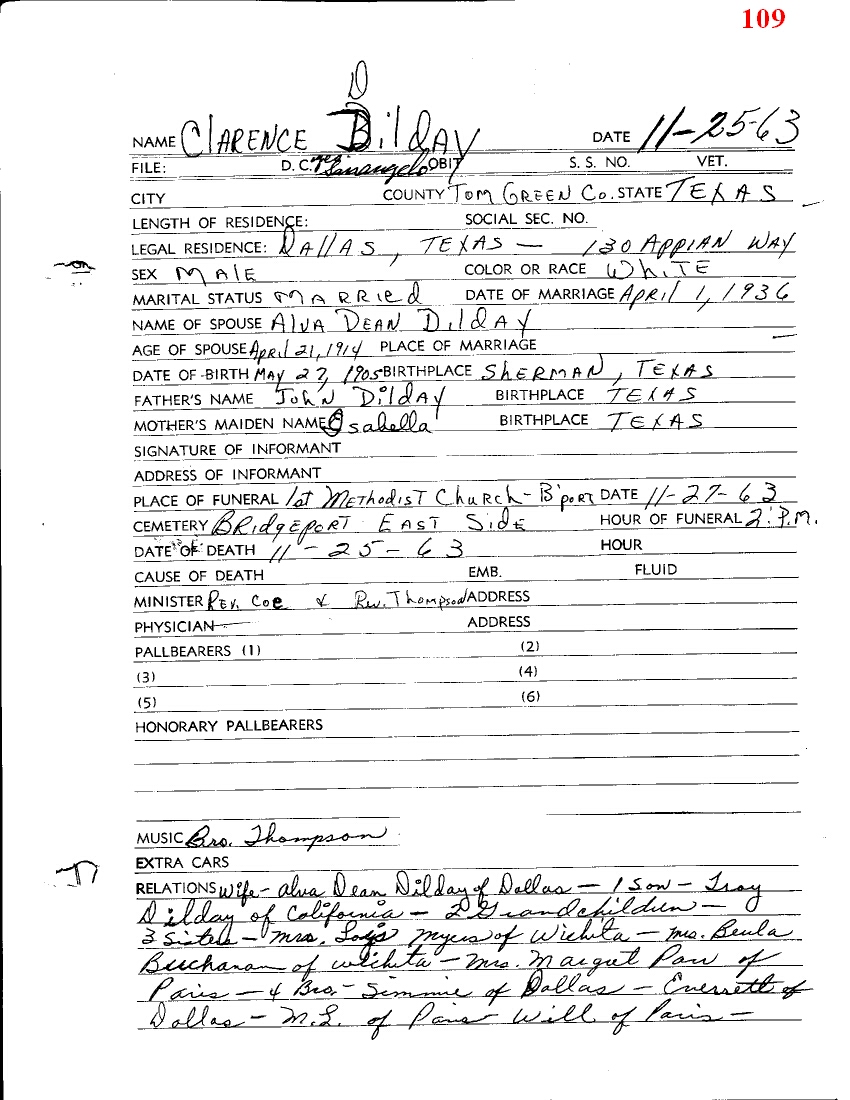 109
D
NAME CLARENCE DildAY DATE 11-25-63
FILE: D.C. yes Sanangelo OBIT S. S. NO. VET.
CITY COUNTY TOM GREEN Co. STATE TEXAS
LENGTH OF RESIDENCE: SOCIAL SEC. NO.
LEGAL RESIDENCE: DAllAS, TEXAS — 130 APPIAN WAY
SEX MAlE COLOR OR RACE WhiTE
MARITAL STATUS MARRied DATE OF MARRIAGE APRil 1, 1936
NAME OF SPOUSE AlVA DEAN DildAY
AGE OF SPOUSE April 21, 1914 PLACE OF MARRIAGE
DATE OF BIRTH MAY 27, 1905 BIRTHPLACE ShERMAN, TEXAS
FATHER'S NAME JohN DildAY BIRTHPLACE TEXAS
MOTHER'S MAIDEN NAME Osabella BIRTHPLACE TEXAS
SIGNATURE OF INFORMANT
ADDRESS OF INFORMANT
PLACE OF FUNERAL 1st METhodisT Church - B'port DATE 11-27-63
CEMETERY BRidgEPORT EAST SidE HOUR OF FUNERAL 2:P.M.
DATE OF DEATH 11-25-63 HOUR
CAUSE OF DEATH EMB. FLUID
MINISTER REV. Coe & Rev. Thompson ADDRESS
PHYSICIAN ADDRESS
PALLBEARERS (1) (2)
(3) (4)
(5) (6)
HONORARY PALLBEARERS
MUSIC Bro. Thompson
EXTRA CARS
RELATIONS Wife - Alva Dean Dilday of Dallas - 1 Son - Troy
Dilday of California - 2 Grandchildren -
3 Sisters - Mrs. Myers of Wichita - Mrs. Beula
Buchanan of Wichita - Mrs. Margret Parr of
Paris - 4 Bro. - Simmie of Dallas - Everrett of
Dallas - M.L. of Paris - Will of Paris -